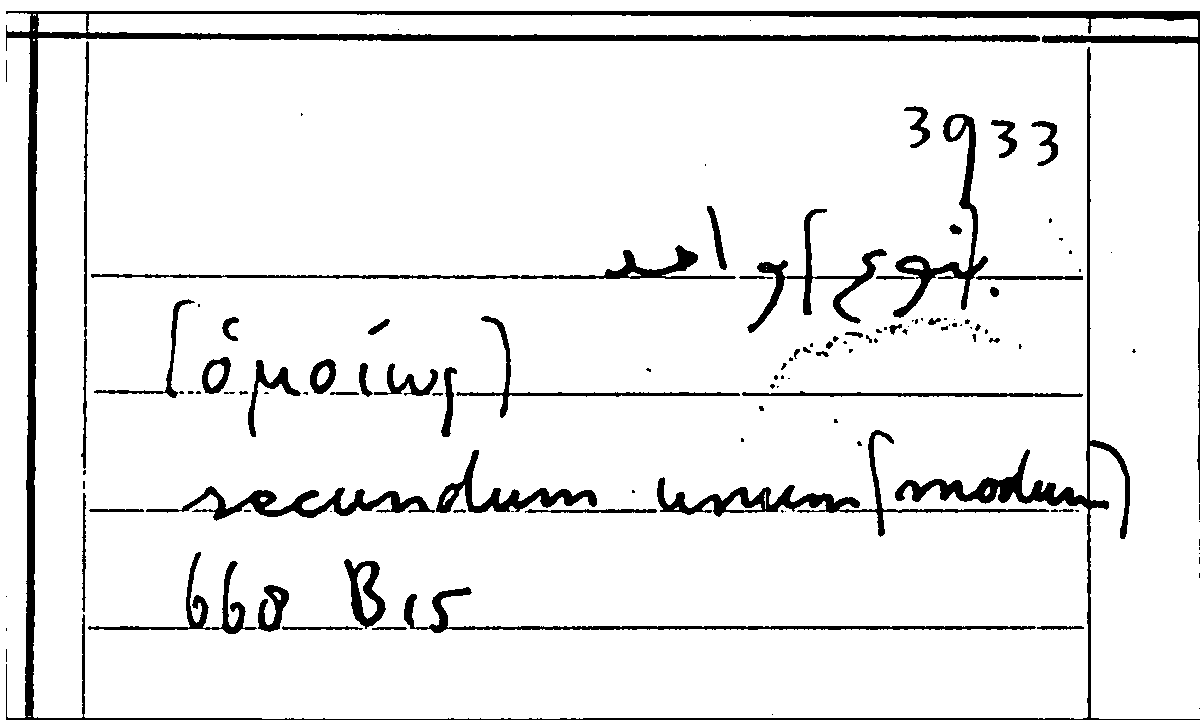 3933
بنوع) واحد
(ὁμοίως)
secundum unum (modum)
668 B 15